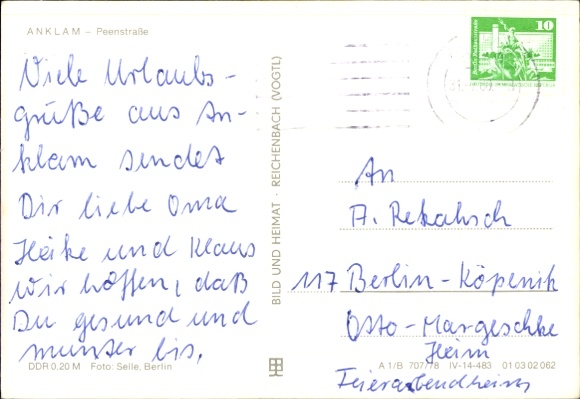 ANKLAM – Peenstraße
Viele Urlaubs-
grüße aus An-
klam sendet
Dir liebe Oma
Heike und Klaus
wir hoffen, daß
Du gesund und
munter bis,
DDR 0,20 M Foto: Selle, Berlin
BILD UND HEIMAT · REICHENBACH (VOGTL)
10
An
A.
117 Berlin-Köpenik
Otto-Margeschke
Heim
Feierabendheim
A 1/B 707/78 IV-14-483 01 03 02 062